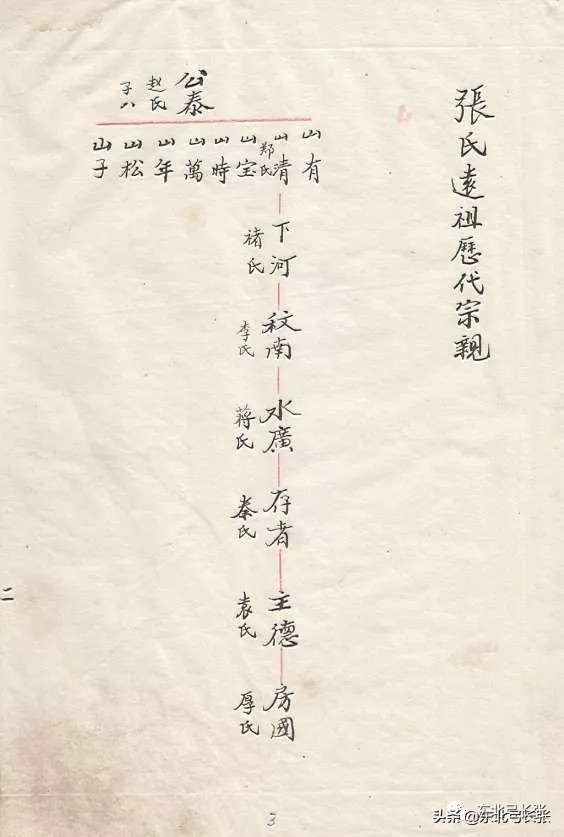 張氏遠祖歷代宗親
公泰
赵氏
子八
山有
山清
郑氏
山宝
山時
山萬
山年
山松
山子
下河
褚氏
秊南
李氏
水廣
蒋氏
存者
秦氏
主德
袁氏
房國
厚氏
二
3
东北弓长张
头条@东北弓长张